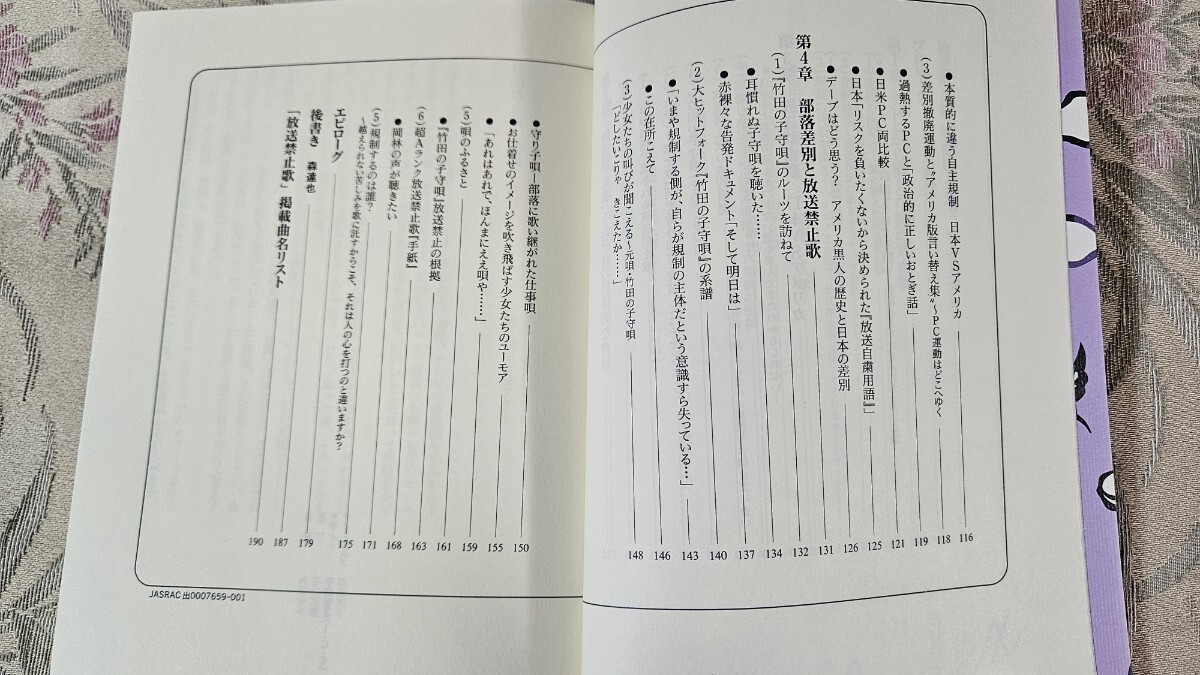 ●本質的に違う自主規制　日本VSアメリカ 116
(3)差別撤廃運動と〝アメリカ版言い替え集〟〜PC運動はどこへゆく 118
●過熱するPCと「政治的に正しいおとぎ話」 119
●日米PC両比較 121
●日本「リスクを負いたくないから決められた『放送自粛用語』」 125
●デーブはどう思う？　アメリカ黒人の歴史と日本の差別 126
第4章　部落差別と放送禁止歌 131
(1)『竹田の子守唄』のルーツを訪ねて 132
●耳慣れぬ子守唄を聴いた…… 134
●赤裸々な告発ドキュメント「そして明日は」 137
(2)大ヒットフォーク『竹田の子守唄』の系譜 140
●「いまや規制する側が、自らが規制の主体だという意識すら失っている…」 143
●この在所こえて 146
(3)少女たちの叫びが聞こえる〜元唄・竹田の子守唄
「どしたいこりゃ　きこえたか……」 148
●守り子唄―部落に歌い継がれた仕事唄 150
●お仕着せのイメージを吹き飛ばす少女たちのユーモア 155
●「あれはあれで、ほんまにええ唄や……」 159
(5)唄のふるさと 161
●『竹田の子守唄』放送禁止の根拠 163
(6)超Aランク放送禁止歌『手紙』 168
●岡林の声が聴きたい 171
(5)規制するのは誰？
〜越えられない苦しみを歌に託すからこそ、それは人の心を打つのと違いますか？ 175
エピローグ 179
後書き　森達也 187
「放送禁止歌」掲載曲名リスト 190
JASRAC 出0007659-001